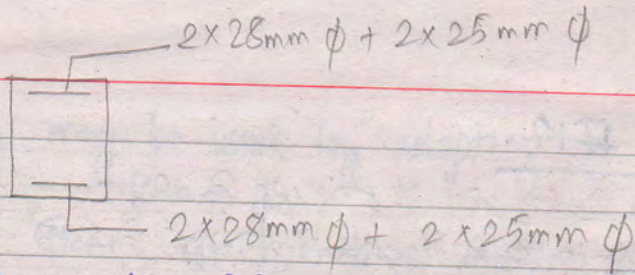 2×28mm ϕ + 2×25mm ϕ
2×28mm ϕ + 2×25mm ϕ